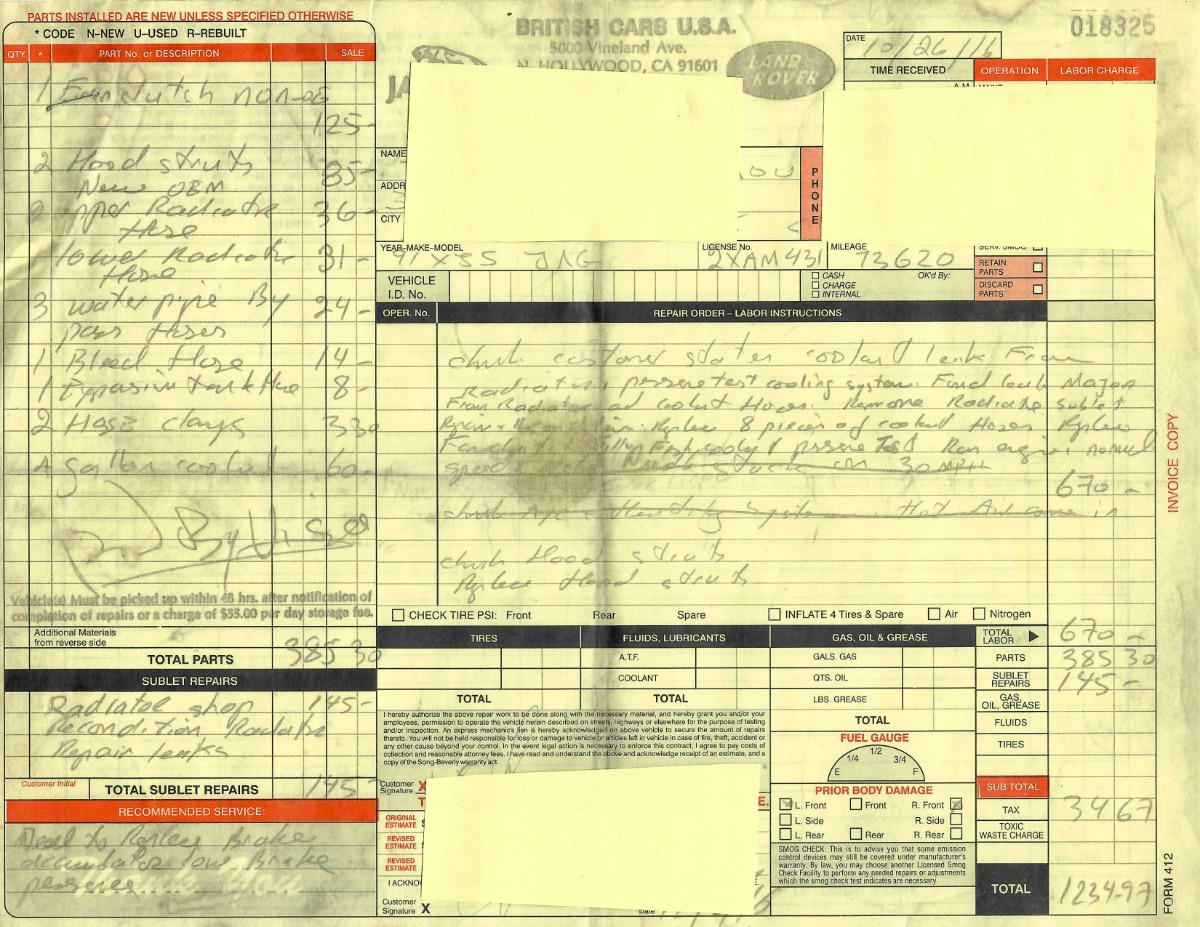 PARTS INSTALLED ARE NEW UNLESS SPECIFIED OTHERWISE
* CODE N–NEW U–USED R–REBUILT
QTY * PART No. or DESCRIPTION SALE
1 clutch non-OE
125-
2 Hood struts 85-
New
upper Radiator 36-
Hose
1 lower Radiator 31-
Hose
3 water pipe By 24-
pass Hoses
1 Bleed Hose 14-
1 8-
2 Hose 330
4 gallon 60-
By
Vehicle(s) Must be picked up within 48 hrs. after notification of
completion of repairs or a charge of $55.00 per day storage fee.
Additional Materials
from reverse side
TOTAL PARTS 385 30
SUBLET REPAIRS
Radiator shop 145-
Recondition Radiator
Repair leaks
Customer Initial TOTAL SUBLET REPAIRS 145-
RECOMMENDED SERVICE:
Need to Replace Brake
low Brake
BRITISH CARS U.S.A.
5000 Vineland Ave.
N. HOLLYWOOD, CA 91601
LAND
ROVER
018325
DATE 10/26/16
TIME RECEIVED
OPERATION LABOR CHARGE
NAME
ADDR
CITY
PHONE
YEAR–MAKE–MODEL LICENSE No. MILEAGE
91 XJS JAG 2XAM431 73620
RETAIN
PARTS
DISCARD
PARTS
VEHICLE
I.D. No.
CASH
CHARGE
INTERNAL
OK'd By:
OPER. No. REPAIR ORDER – LABOR INSTRUCTIONS
customer states leak From
Radiator, test cooling system. leak Major
From Radiator Remove Radiator sublet
8 pieces of Hoses
Test Run normal
speed 30 MPH
670-
system Hot Air in
Hood struts
Hood struts
CHECK TIRE PSI: Front Rear Spare INFLATE 4 Tires & Spare Air Nitrogen
TIRES FLUIDS, LUBRICANTS GAS, OIL & GREASE
A.T.F. GALS. GAS
COOLANT QTS. OIL
TOTAL TOTAL LBS. GREASE
I hereby authorize the above repair work to be done along with the necessary material, and hereby grant you and/or your
employees, permission to operate the vehicle herein described on streets, highways or elsewhere for the purpose of testing
and/or inspection. An express mechanic's lien is hereby acknowledged on above vehicle to secure the amount of repairs
thereto. You will not be held responsible for loss or damage to vehicle or articles left in vehicle in case of fire, theft, accident or
any other cause beyond your control. In the event legal action is necessary to enforce this contract, I agree to pay costs of
collection and reasonable attorney fees. I have read and understand the above and acknowledge receipt of an estimate, and a
copy of the Song-Beverly warranty act.
Customer
Signature X
ORIGINAL
ESTIMATE
REVISED
ESTIMATE
REVISED
ESTIMATE
I ACKNO
Customer
Signature X
Date
TOTAL
FUEL GAUGE
E 1/4 1/2 3/4 F
PRIOR BODY DAMAGE
L. Front Front R. Front
L. Side R. Side
L. Rear Rear R. Rear
SMOG CHECK: This is to advise you that some emission
control devices may still be covered under manufacturer's
warranty. By law, you may choose another Licensed Smog
Check Facility to perform any needed repairs or adjustments
which the smog check test indicates are necessary.
TOTAL
LABOR 670-
PARTS 385 30
SUBLET
REPAIRS 145-
GAS,
OIL, GREASE
FLUIDS
TIRES
SUB TOTAL
TAX 34 67
TOXIC
WASTE CHARGE
TOTAL 1234-97
INVOICE COPY
FORM 412